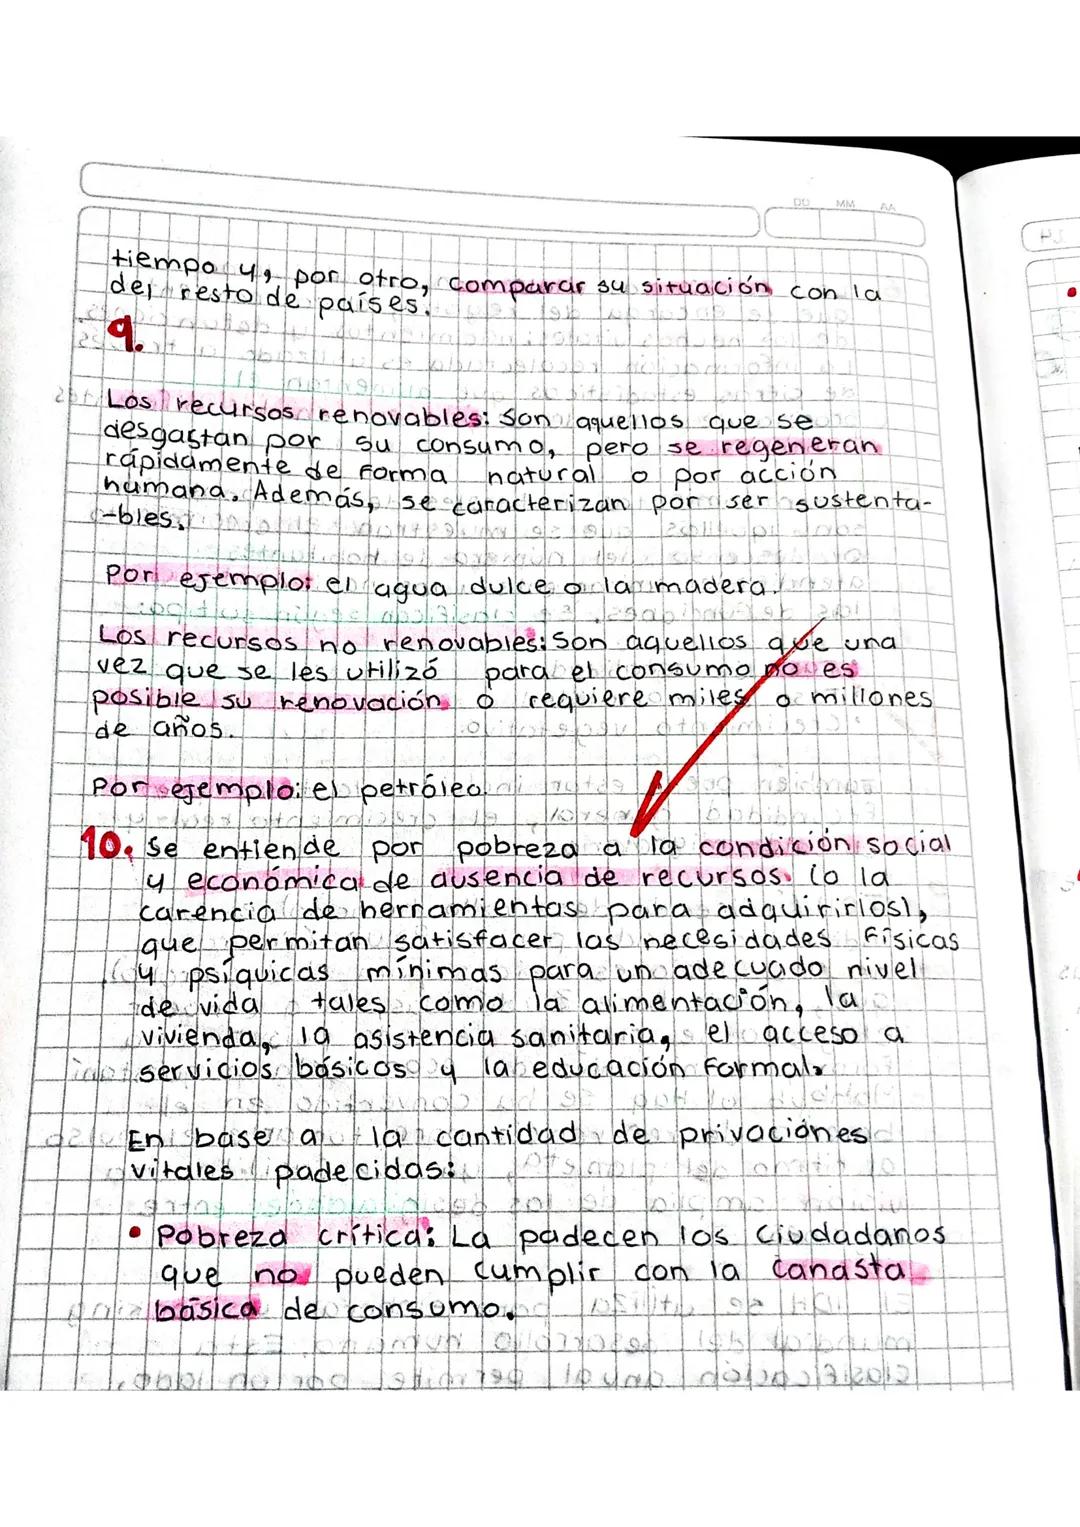 DD MM AA
tiempo y, por otro, comparar su situación con la
del resto de países.
9.
Los recursos renovables: Son aquellos que se
desgastan por su consumo, pero se regeneran
rápidamente de forma natural o por acción
humana. Además, se caracterizan por ser sustenta-
-bles.
Por ejemplo: el agua dulce o la madera.
Los recursos no renovables: Son aquellos que una
vez que se les utilizó para el consumo no es
posible su renovación o requiere miles o millones
de años.
Por ejemplo: el petróleo
10. Se entiende por pobreza a la condición social
y económica de ausencia de recursos (o la
carencia de herramientas para adquirirlos),
que permitan satisfacer las necesidades físicas
y psíquicas mínimas para un adecuado nivel
de vida tales como la alimentación, la
vivienda, la asistencia sanitaria, el acceso a
servicios básicos y la educación formal.
En base a la cantidad de privaciones
vitales padecidas:
• Pobreza crítica: La padecen los ciudadanos
que no pueden cumplir con la canasta
básica de consumo.